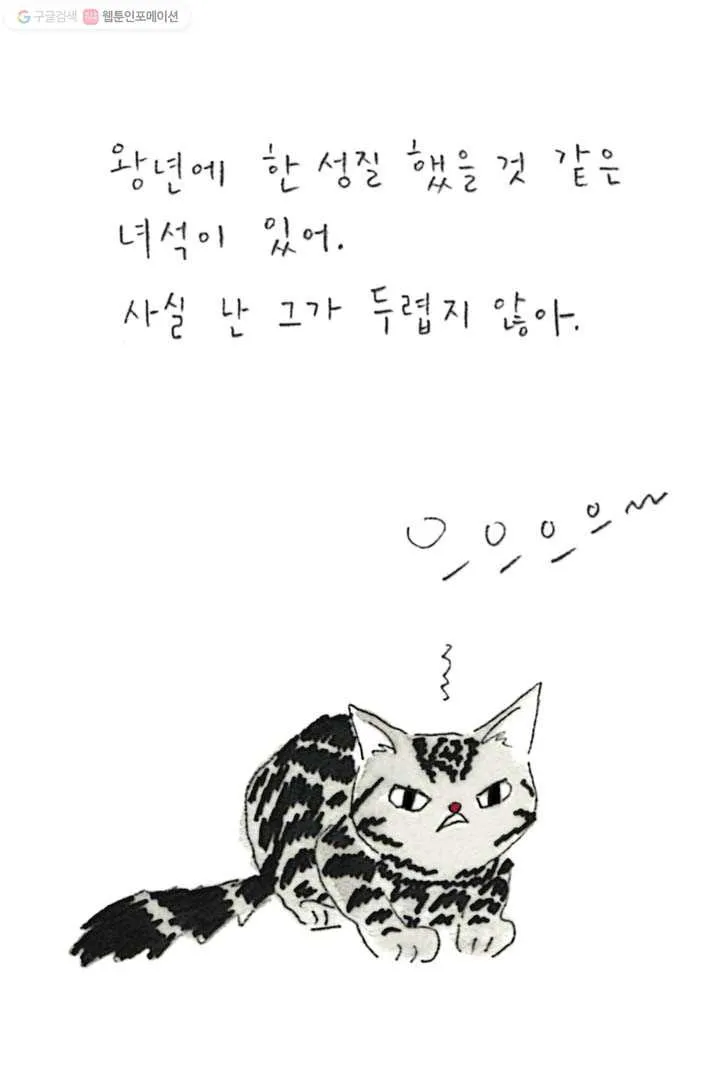 구글검색 웹툰인포메이션
왕년에 한 성질 했을것 같은
녀석이 있어.
사실 난 그가 두렵지 않아.
으으으으~